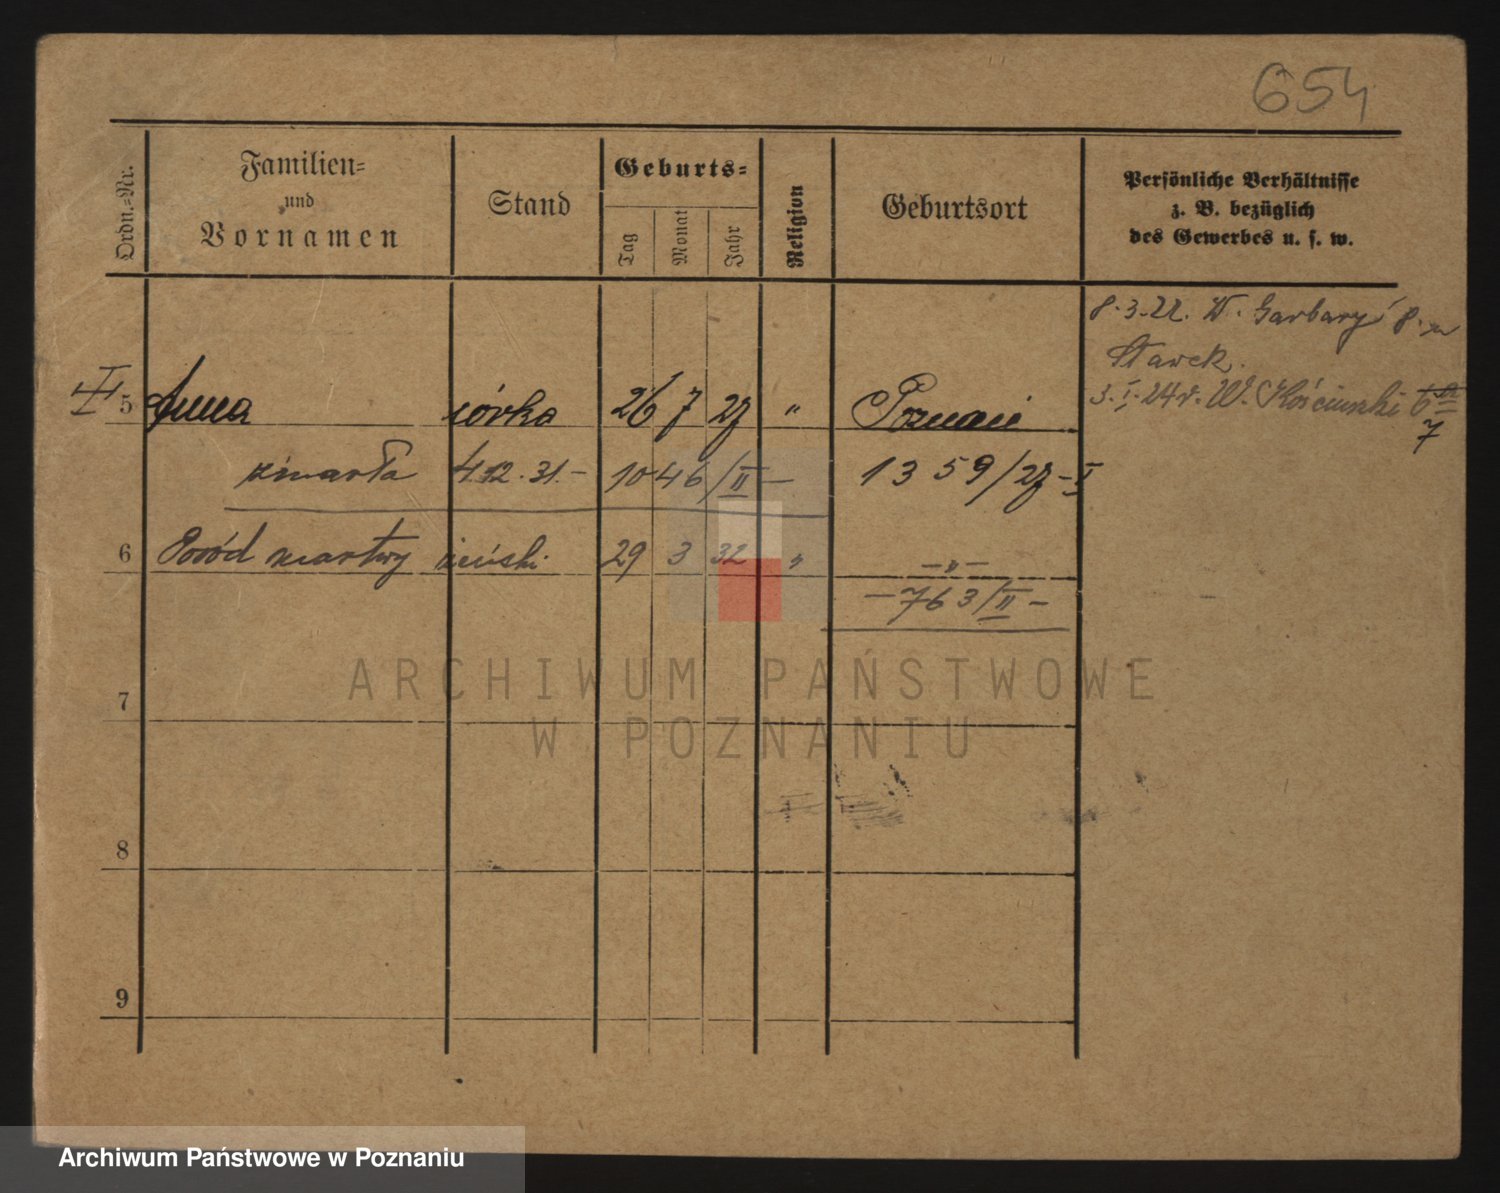 654
Ordn.-Nr.
Familien-
und
Vornamen
Stand
Geburts-
Tag
Monat
Jahr
Religion
Geburtsort
Persönliche Verhältnisse
z. B. bezüglich
des Gewerbes u. s. w.
8.3.22. W. Garbary 8.
Stawek.
3.I.24r. W.
7
5 Anna córka 26 7 29 " Poznań
zmarła 4.12.31.- 1046/II- 1359/29-I
6 Poród martwy żeński. 29 3 32 " -"-
-763/II-
7
8
9
ARCHIWUM PAŃSTWOWE
W POZNANIU
Archiwum Państwowe w Poznaniu